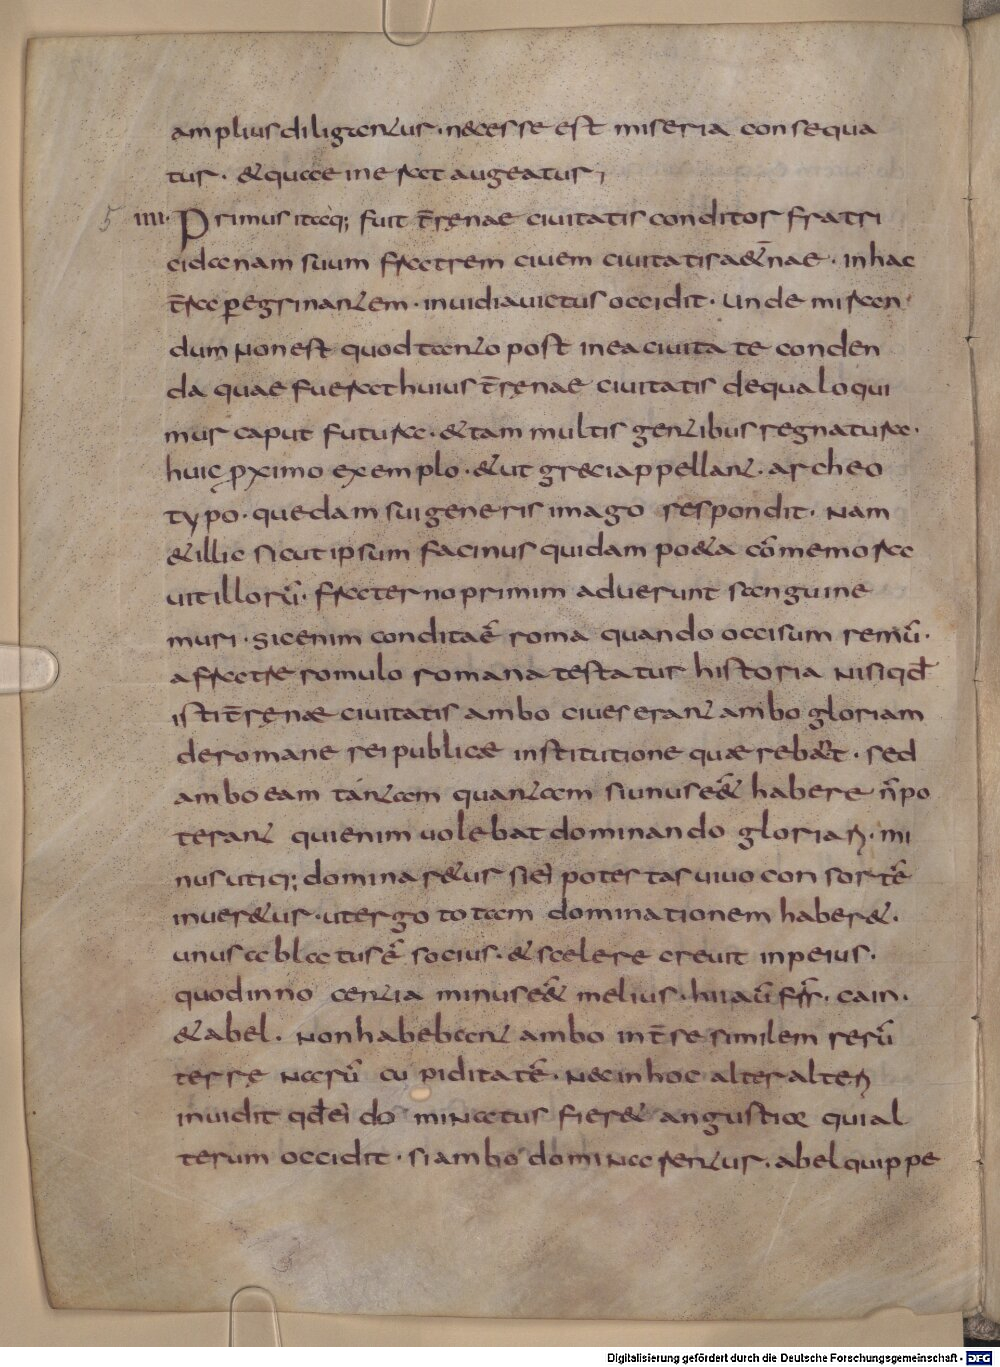 amplius diligentur · necesse est miseria consequa
tur · & quae inerat augeatur;
5 IIII · Primus itaq; fuit t̄renae ciuitatis conditor fratri
cida nam suum fratrem ciuem ciuitatis a&n̄ae · in hac
t̄ra peregrinantem · inuidia uictus occidit · unde miran
dum non est quod tanto post in ea ciuitate conden
da quae fuerat huius t̄renae ciuitatis de qua loqui
mur caput futura · & tam multis gentibus regnatura ·
huic pximo exemplo · & ut greci appellant · archeo
typo · quedam sui generis imago respondit · Nam
& illic sicut ipsum facinus quidam po&a cōmemora
uit illorū · fraterno primim aduerunt sanguine
muri · sic enim condita ē roma quando occisum remū ·
a fratre romulo romana testatur historia nisi qđ
isti t̄renae ciuitatis ambo ciues erant ambo gloriam
de romane reipublicae institutione quaerebant · sed
ambo eam tantam quantam si unus ee& habere n̄ po
terant qui enim uolebat dominando gloriari · mi
nus utiq; dominar&ur si ei potestas uiuo consorte
inuer&ur · ut ergo totam dominationem haber& ·
unus ablatus ē socius · & scelere creuit in peius ·
quod innocentia minus ee& melius · hii aū frr̄ · cain ·
& abel · Non habebant ambo int̄ se similem rerū
terre narū cupiditatē · nec in hoc alter alteri
inuidit qđ ei dominatus fier& angustior qui al
terum occidit · si ambo dominarentur · abel quippe
Digitalisierung gefördert durch die Deutsche Forschungsgemeinschaft - DFG